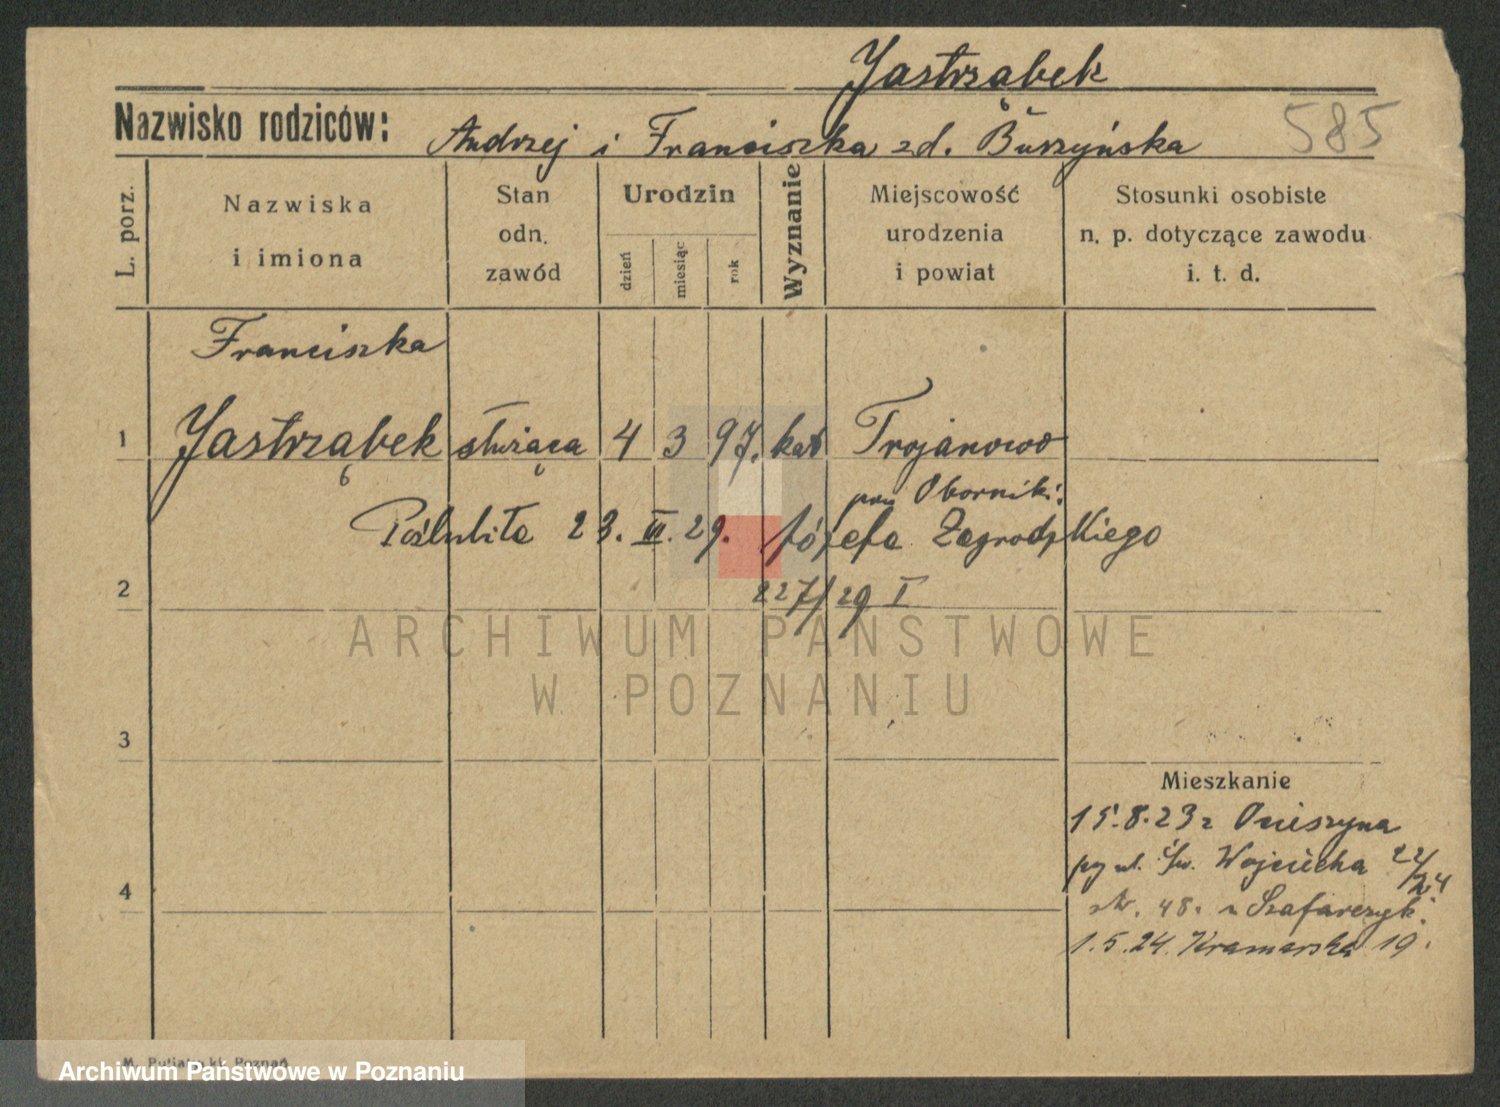 Jastrząbek
Nazwisko rodziców: Andrzej i Franciszka zd. Buszyńska 585
L. porz.
Nazwiska
i imiona
Stan
odn.
zawód
Urodzin
dzień
miesiąc
rok
Wyznanie
Miejscowość
urodzenia
i powiat
Stosunki osobiste
n. p. dotyczące zawodu
i. t. d.
Franciszka
1 Jastrząbek służąca 4 3 97. kat Trojanowo
Oborniki
Poślubiła 23. III. 29. Józefa Zagrodzkiego
2 227/29 I
ARCHIWUM PAŃSTWOWE
W POZNANIU
3
Mieszkanie
15.8.23 z Ocieszyna
ul. Św. Wojciecha 22/24
4
48. Szafarczyk.
1.5.24. Kramarska 19.
Poznań
Archiwum Państwowe w Poznaniu